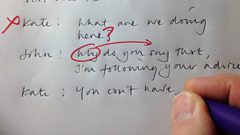 Kate: What are we doing
here?
John: Why do you say that,
I'm following your advice
Kate: You can't have